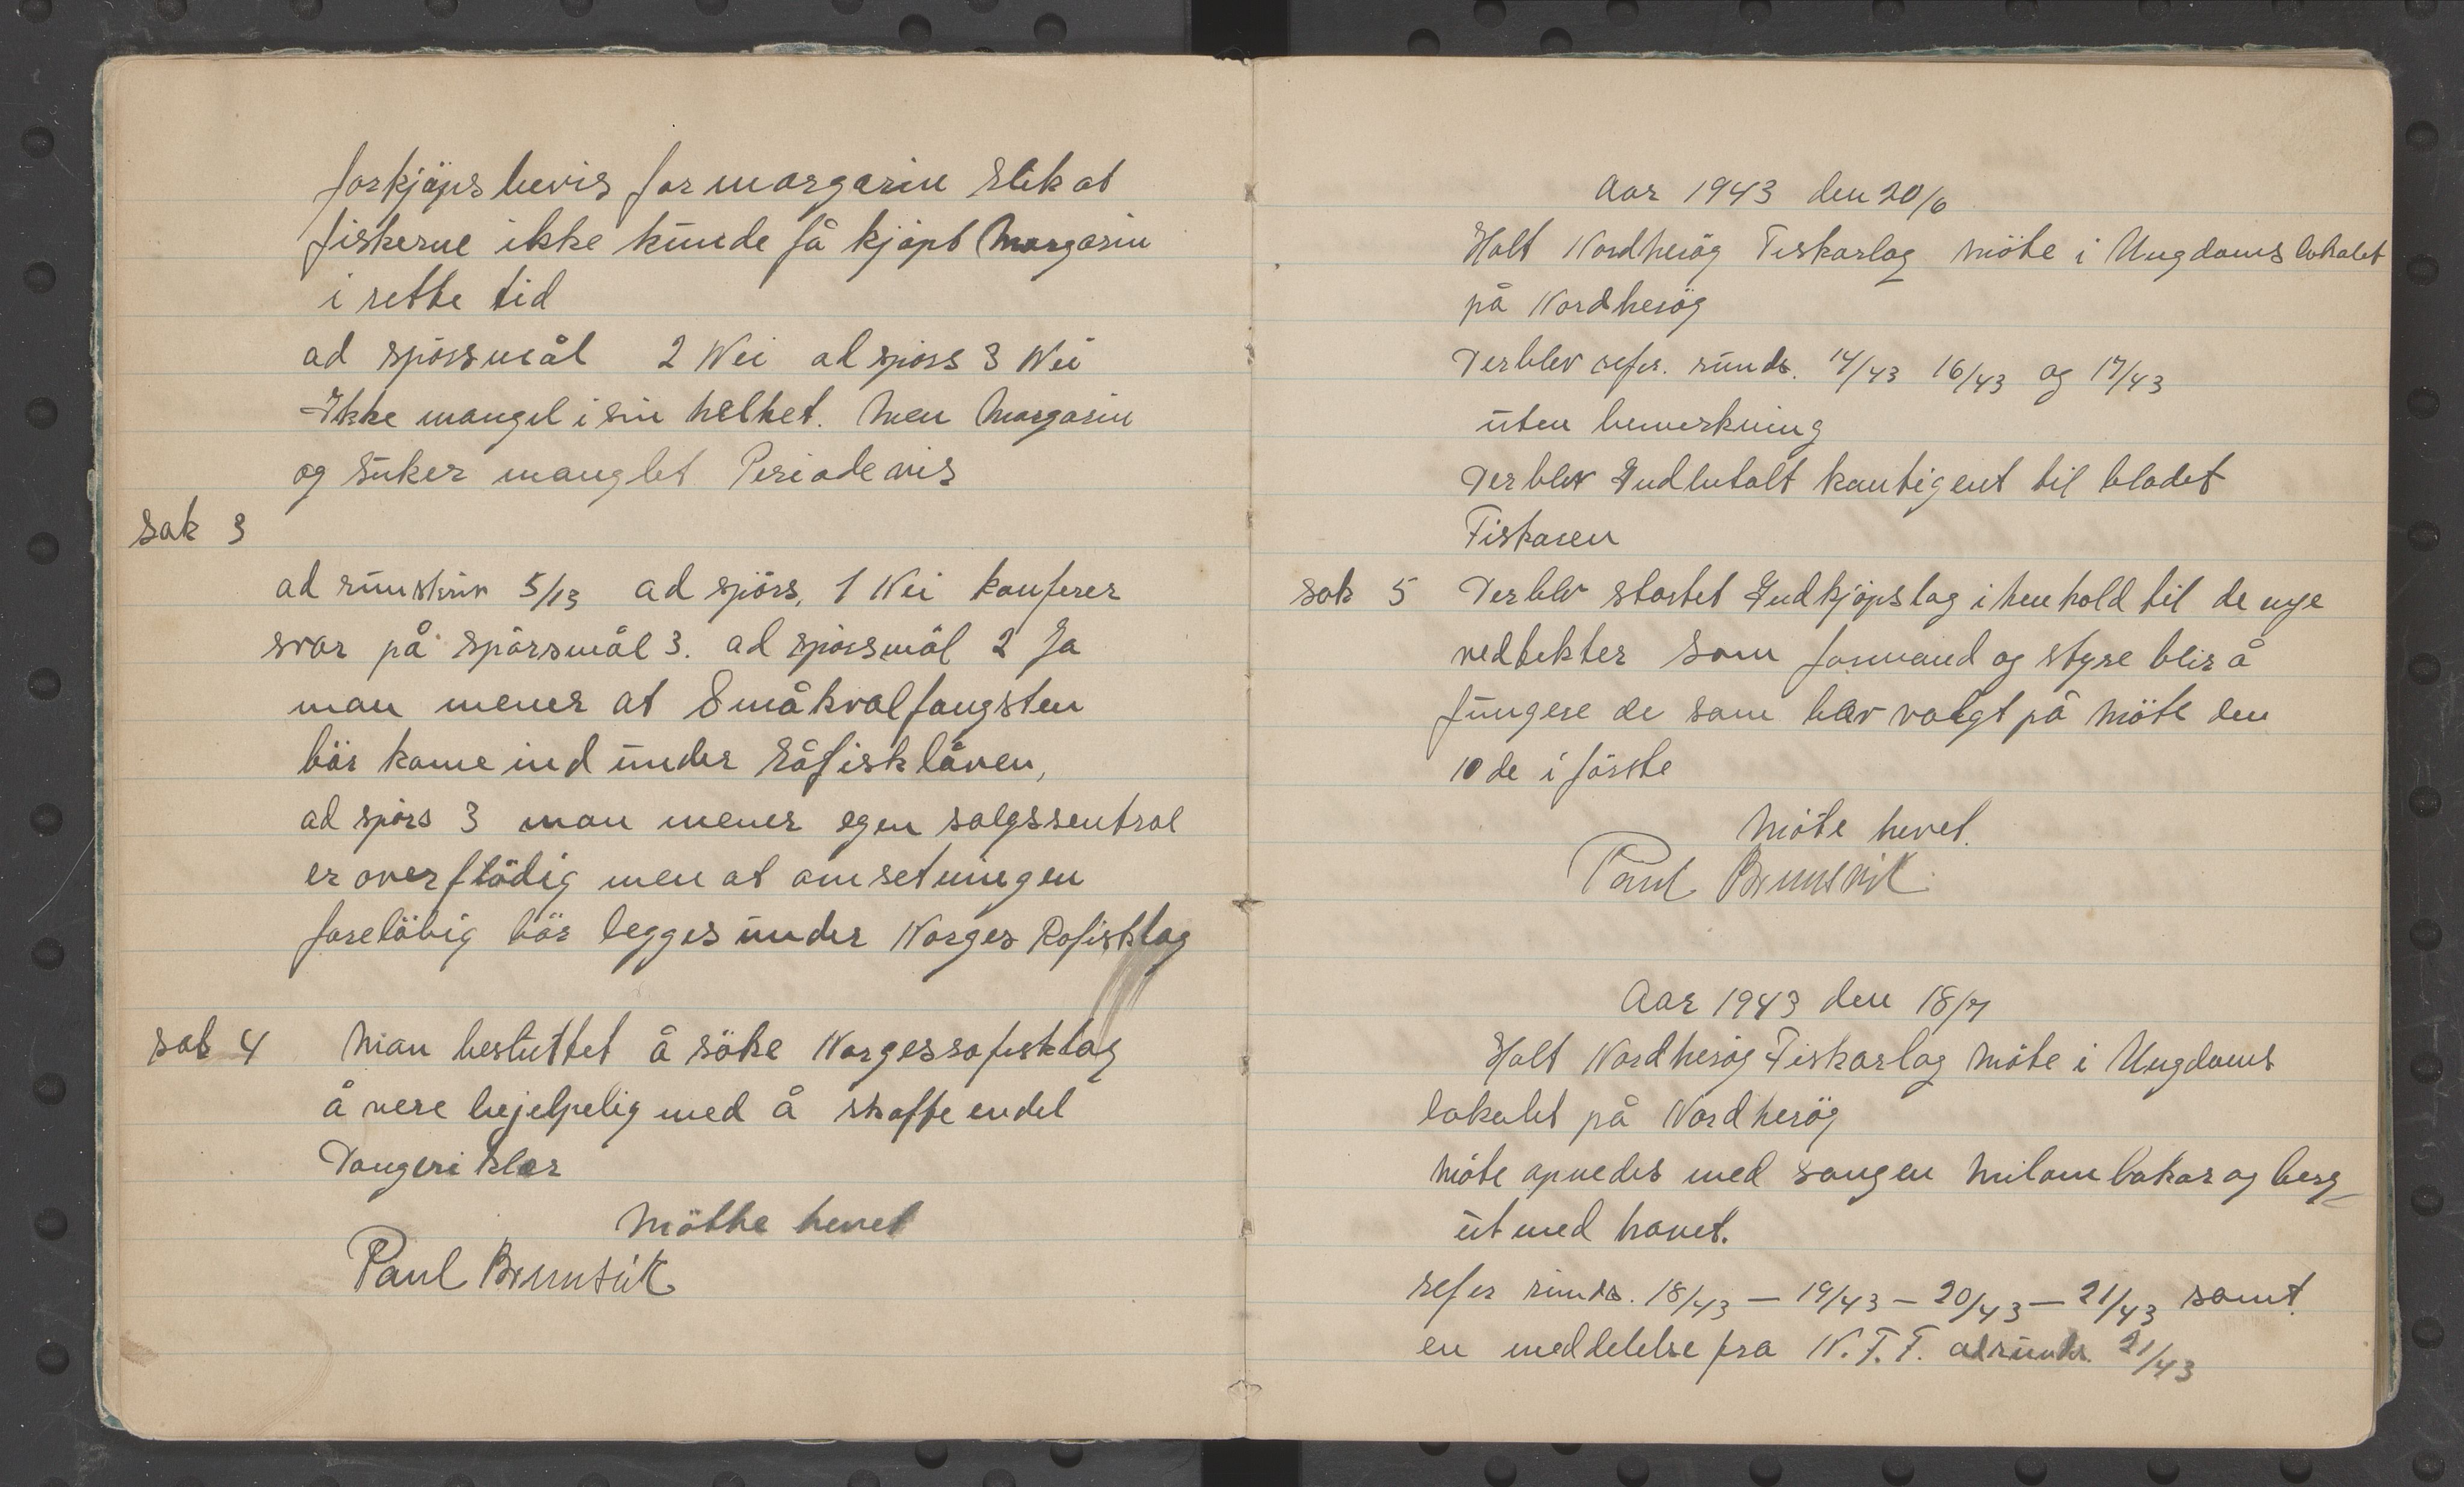 forkjöps bevis for margarin slik at
fiskerne ikke kunde få kjöpt Margarin
i rette tid
ad spörsmål 2 Nei ad spörs 3 Nei
Ikke mangel i sin helhet. Men Margarin
og suker manglet Periode vis
Sak 3
ad runskriv 5/13 ad spörs. 1 Nei konferer
svar på spörsmål 3. ad spörsmål 2 Ja
man mener at Småkvalfangsten
bör kome ind under Råfisklåven,
ad spörs 3 man mener egen salgssentral
er overflödig men at omsetningen
forelöbig bör legges under Norges Rofisklag
sak 4 Man besluttet å söke Norgesrofisklag
å vere hjelpelig med å skaffe endel
Dongeri klær
Mötte hevet
Paul Brunsvik
Aar 1943 den 20/6
Holt Nordherög Fiskarlag Möte i Ungdoms lokalet
på Nordherög
Der blev refer. runds. 14/43 16/43 og 17/43
uten bemerkning
Der blev Indbetalt kontigent til bladet
Fiskaren
sak 5 Der blev startet Indkjöpslag i henhold til de nye
vedtekter Som formand og styre blir å
fungere de som blev valgt på Möte den
10 de i förste
Möte hevet.
Paul Brunsvik
Aar 1943 den 18/7
Holt Nordherög Fiskarlag Möte i Ungdoms
lokalet på Nordherög
Möte apnedes med sangen Milom bakar og berg
ut med havet.
refer runds. 18/43 – 19/43 – 20/43 – 21/43 samt.
en meddelelse fra N.F.F. ad runds. 21/43